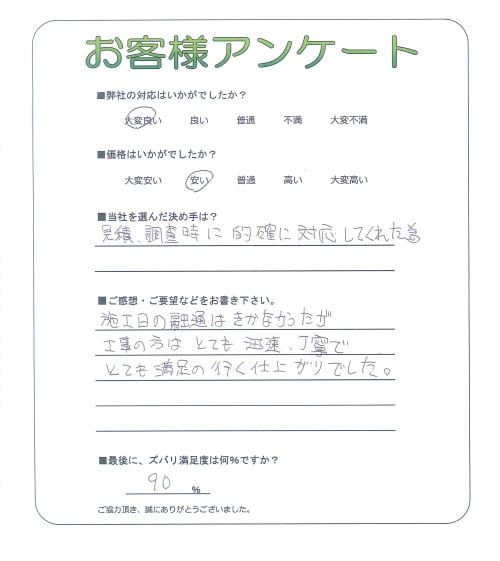 お客様アンケート
■弊社の対応はいかがでしたか?
大変良い 良い 普通 不満 大変不満
■価格はいかがでしたか?
大変安い 安い 普通 高い 大変高い
■当社を選んだ決め手は?
見積、調査時に的確に対応してくれた為
■ご感想・ご要望などをお書き下さい。
施工日の融通はきかなかったが
工事の方はとても迅速、丁寧で
とても満足の行く仕上がりでした。
■最後に、ズバリ満足度は何%ですか?
90 %
ご協力頂き、誠にありがとうございました。